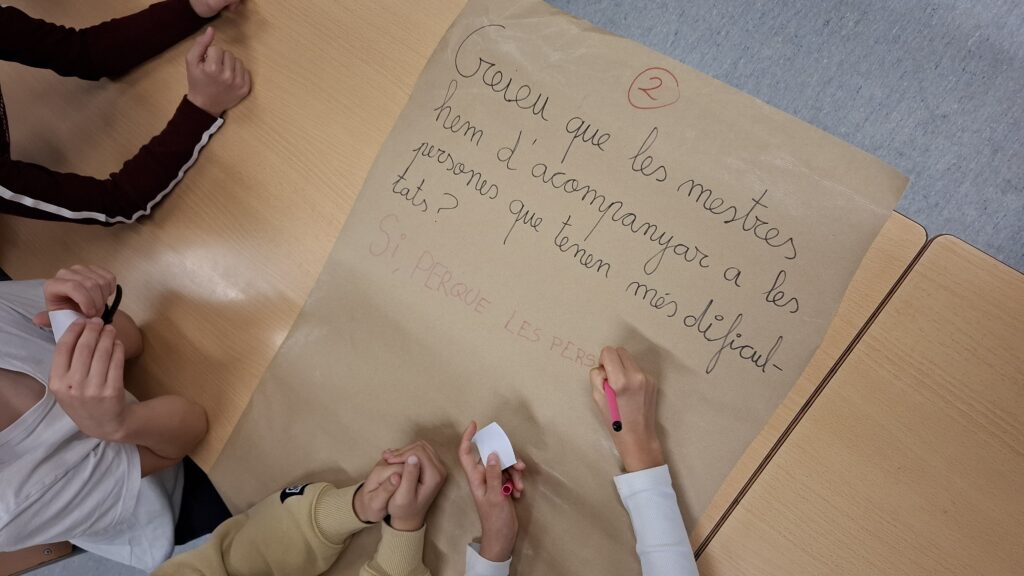 2
Creieu que les mestres
hem d'acompanyar a les
persones que tenen més dificul-
tats?
Si, PERQUE LES PERS